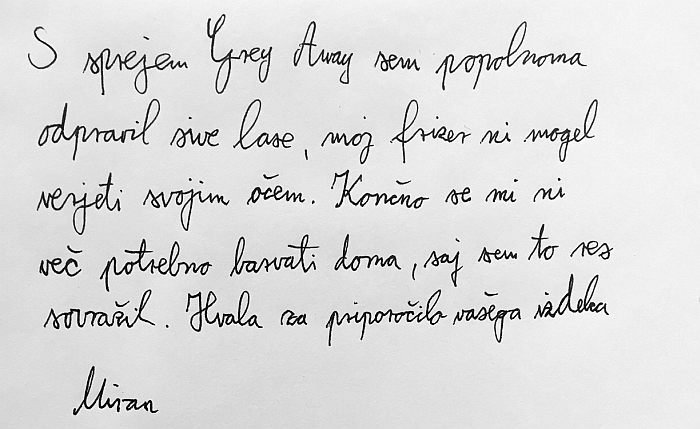 S sprejem Grey Away sem popolnoma
odpravil sive lase, moj frizer ni mogel
verjeti svojim očem. Končno se mi ni
več potrebno barvati doma, saj sem to res
sovražil. Hvala za priporočilo vašega izdelka
Miran